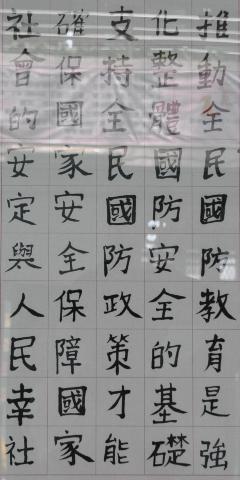 推動全民國防教育是強
化整體國防安全的基礎
支持全民國防政策才能
確保國家安全保障國家
社會的安定與人民幸社